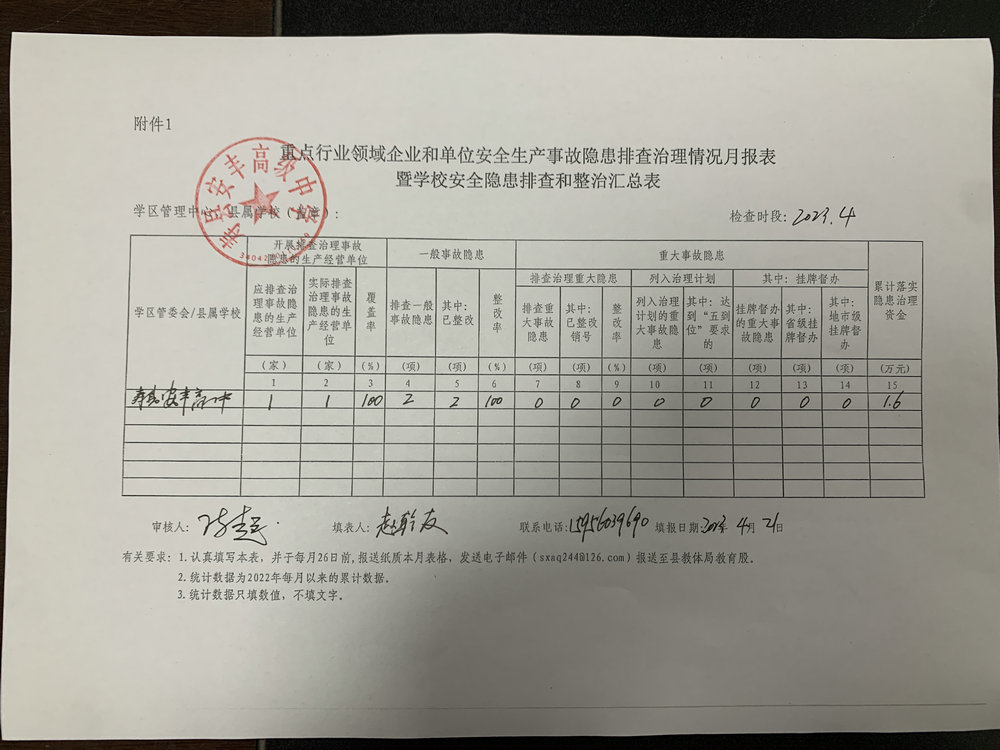 附件1
重点行业领域企业和单位安全生产事故隐患排查治理情况月报表
暨学校安全隐患排查和整治汇总表
寿县安丰高级中学
学区管理中心、县属学校（盖章）：
检查时段：2023.4
学区管委会/县属学校
开展排查治理事故隐患的生产经营单位
一般事故隐患
重大事故隐患
累计落实隐患治理资金
排查治理重大隐患
列入治理计划
其中：挂牌督办
应排查治理事故隐患的生产经营单位
实际排查治理事故隐患的生产经营单位
覆盖率
排查一般事故隐患
其中：已整改
整改率
排查重大事故隐患
其中：已整改销号
整改率
列入治理计划的重大事故隐患
其中：达到“五到位”要求的
挂牌督办的重大事故隐患
其中：省级挂牌督办
其中：地市级挂牌督办
（家） （家） （%） （项） （项） （%） （项） （项） （%） （项） （项） （项） （项） （项） （万元）
1 2 3 4 5 6 7 8 9 10 11 12 13 14 15
寿县安丰高中 1 1 100 2 2 100 0 0 0 0 0 0 0 0 1.6
审核人： 填表人：赵 友 联系电话：15956039690 填报日期：2023年4月21日
有关要求：1.认真填写本表，并于每月26日前，报送纸质本月表格，发送电子邮件（sxaq244@126.com）报送至县教体局教育股。
2.统计数据为2022年每月以来的累计数据。
3.统计数据只填数值，不填文字。